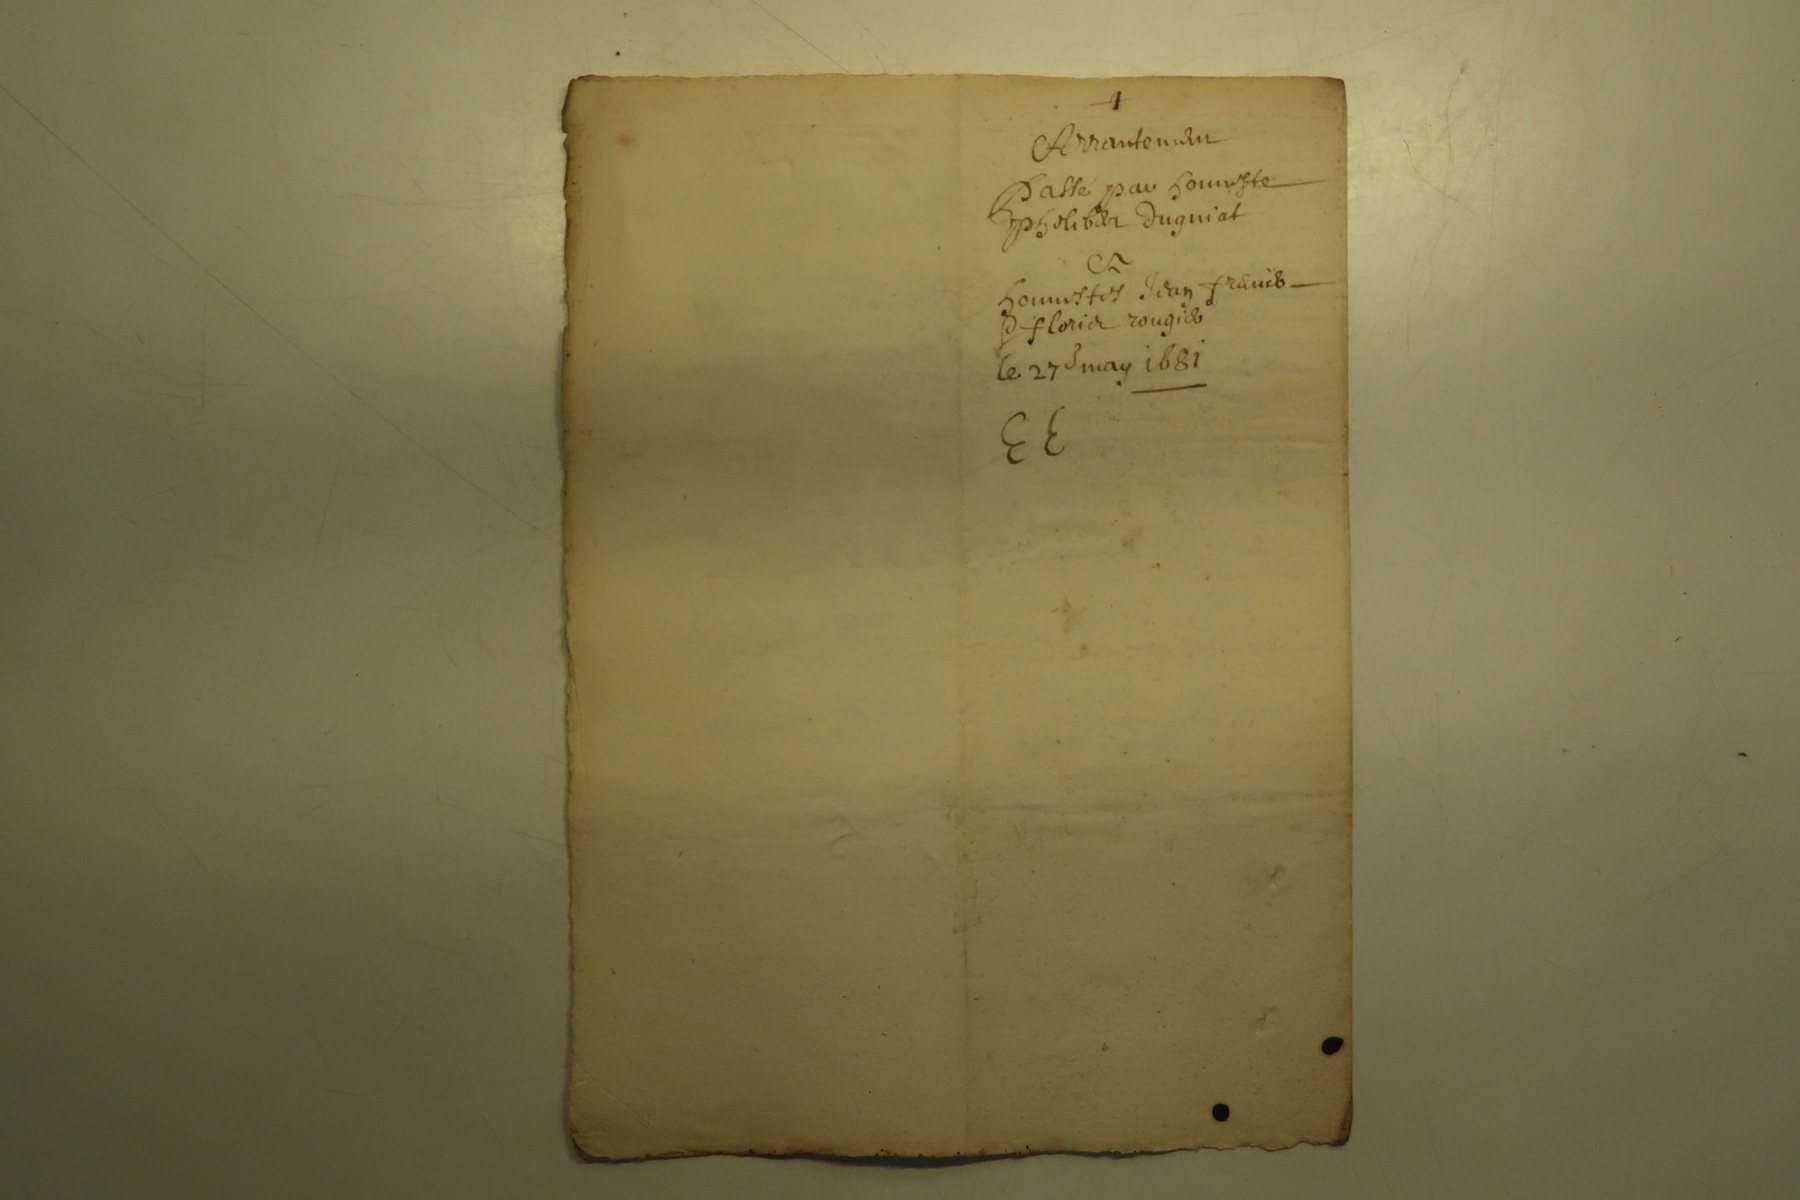 4
Arrantemen
Passé par honneste
pheliber Dugniat
A
honnestes Jean francois
& florier rougier
le 27e may 1681
EE